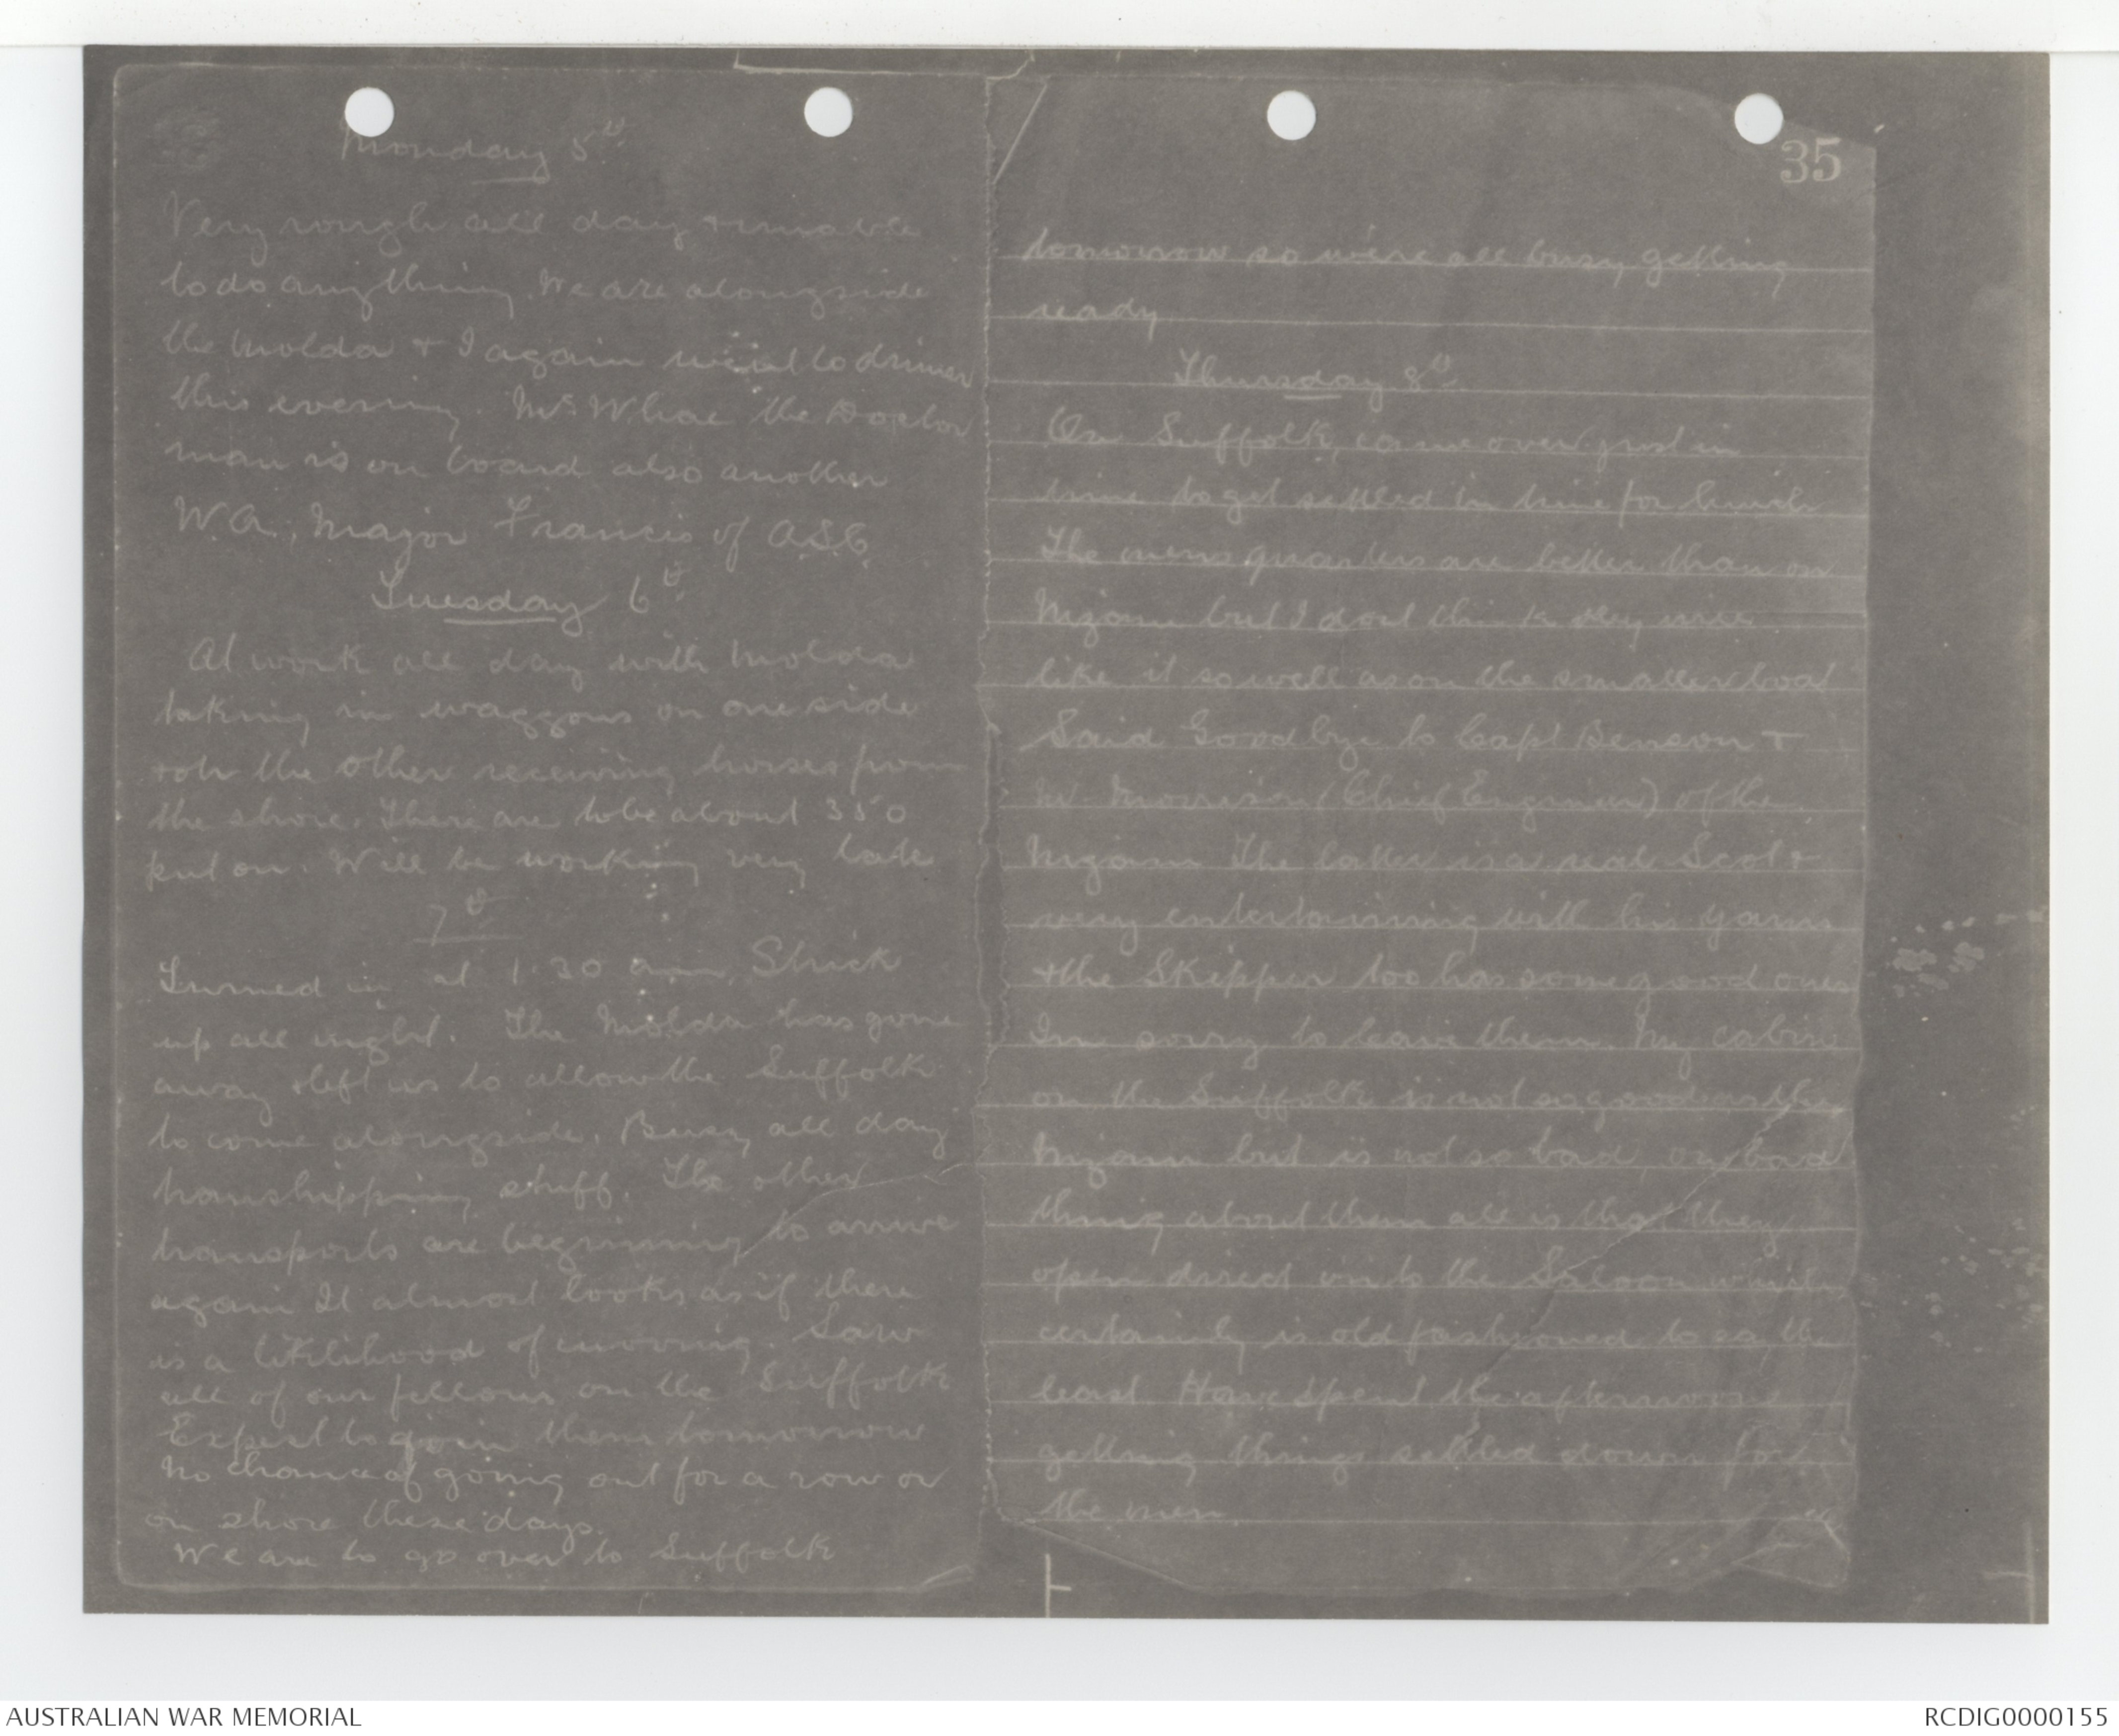 Monday 5th
Very rough all day & unable
to do anything. We are alongside
the Molda & I again went to dinner
this evening. Mc Whae the Doctor
man is on board also another
W.A., Major Francis of A.S.C.
Tuesday 6th
At work all day with Molda
taking in waggons on one side
& on the other receiving horses from
the shore. There are to be about 350
put on. Will be working very late
7th
Turned in at 1.30 am. Strick
up all night. The Molda has gone
away & left us to allow the Suffolk
to come alongside. Busy all day
transhipping stuff. The other
transports are beginning to arrive
again It almost looks as if there
is a likilihood of moving. Saw
all of our fellows on the Suffolk
Expect to join them tomorrow
No chance of going out for a row or
on shore these days.
We are to go over to Suffolk
35
tomorrow so we're all busy getting
ready
Thursday 8th
On Suffolk, came over just in
time to get settled in time for lunch
The mens quarters are better than on
Nizam but I dont think they will
like it so well as on the smaller boat
Said Good bye to Capt Benson &
Mr Morrison (Chief Engineer) of the
Nizam The latter is a real Scot &
very entertaining with his yarns
& the Skipper too has some good ones
Im sorry to leave them. My cabin
on the Suffolk is not so good as the
Nizam but is not so bad, one bad
thing about them all is that they
open direct into the Saloon which
certainly is old fashioned to say the
least Have spent the afternoon
getting things settled down for
the men.
AUSTRALIAN WAR MEMORIAL
RCDIG0000155